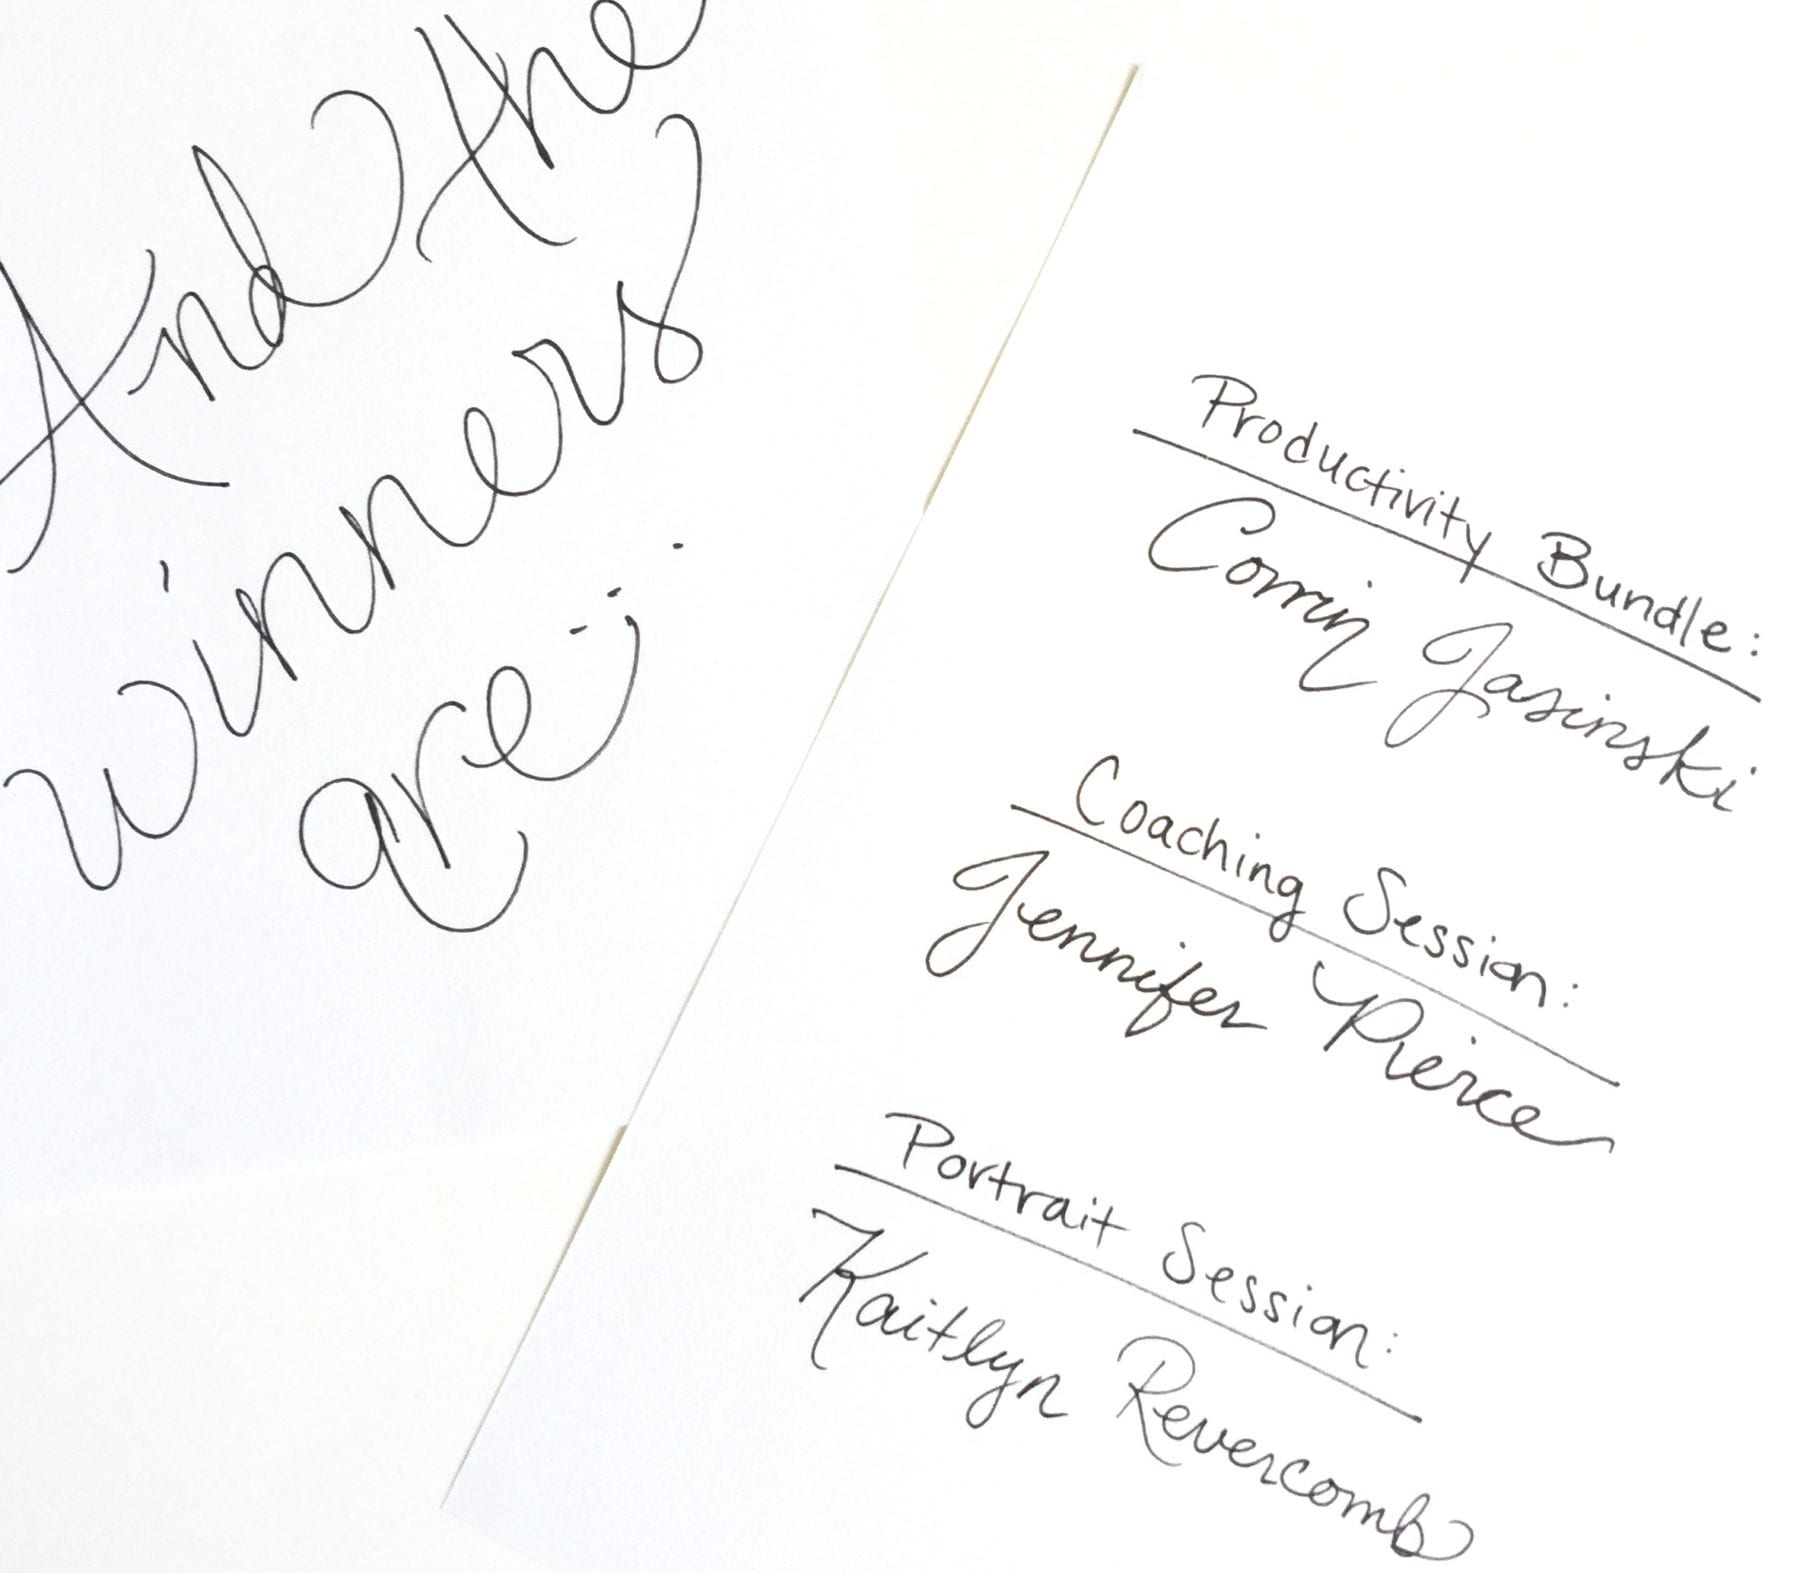 And the
winners
are...
Productivity Bundle:
Corrin Jasinski
Coaching Session:
Jennifer Pierce
Portrait Session:
Kaitlyn Revercomb